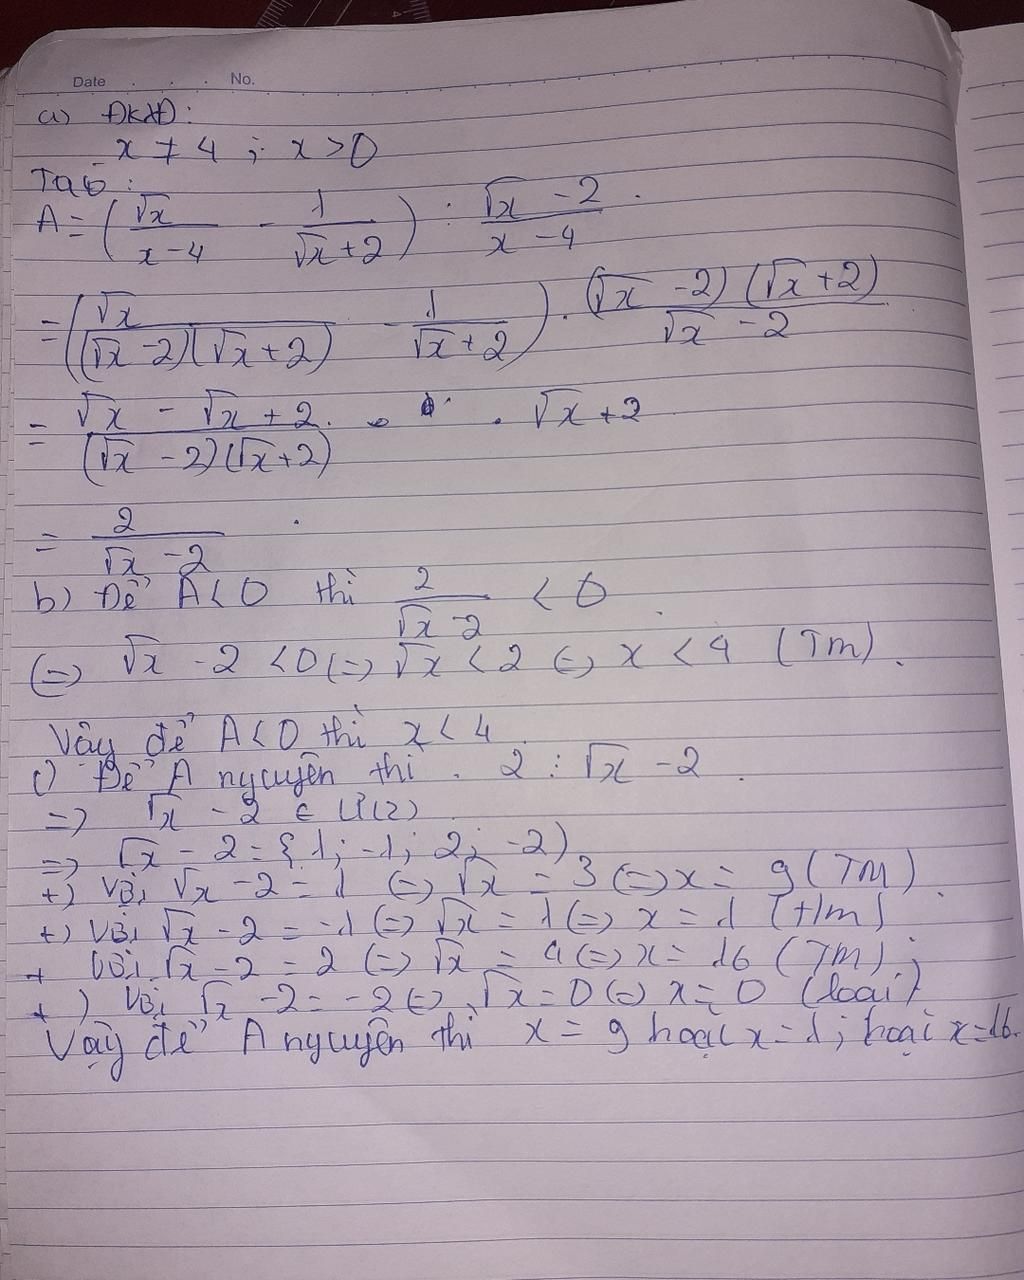 Date . . . No.
a) ĐKXĐ:
x ≠ 4 ; x > 0
Ta có :
A = (√x / (x - 4) - 1 / (√x + 2)) : (√x - 2) / (x - 4) .
= (√x / ((√x - 2)(√x + 2)) - 1 / (√x + 2)) . (√x - 2)(√x + 2) / (√x - 2)
= (√x - √x + 2) / ((√x - 2)(√x + 2)) . √x + 2
= 2 / (√x - 2)
b) Để A < 0 thì 2 / (√x - 2) < 0
(=) √x - 2 < 0 (=) √x < 2 (=) x < 4 (Tm).
Vậy để A < 0 thì x < 4
c) Để A nguyên thì . 2 ⋮ √x - 2 .
=) √x - 2 ∈ Ư(2)
=) √x - 2 = {1 ; -1 ; 2 ; -2)
+) Với √x - 2 = 1 (=) √x = 3 (=) x = 9 (TM).
+) Với √x - 2 = -1 (=) √x = 1 (=) x = 1 (t/m)
+ Với √x - 2 = 2 (=) √x = 4 (=) x = 16 (TM) ;
+ ) Với √x - 2 = -2 (=) √x = 0 (=) x = 0 (loại)
Vậy để A nguyên thì x = 9 hoặc x = 1 ; hoặc x = 16.